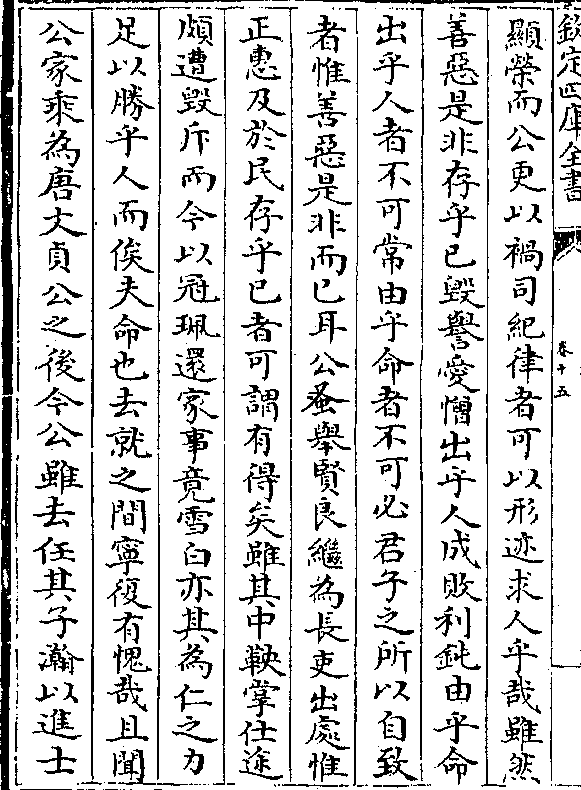 欽定四庫全書
卷十五
顯榮而公更以禍司紀律者可以形迹求人乎哉雖然
善惡是非存乎已毀譽愛憎出乎人成敗利鈍由乎命
出乎人者不可常由乎命者不可必君子之所以自致
者惟善惡是非而已耳公蚤舉賢良繼為長吏出處惟
正惠及於民存乎已者可謂有得矣雖其中鞅掌仕途
頗遭毀斥而今以冠珮還家事竟雪白亦其為仁之力
足以勝乎人而俟夫命也去就之間寧復有愧哉且聞
公家乘為唐文貞公之後今公雖去任其子瀚以進士